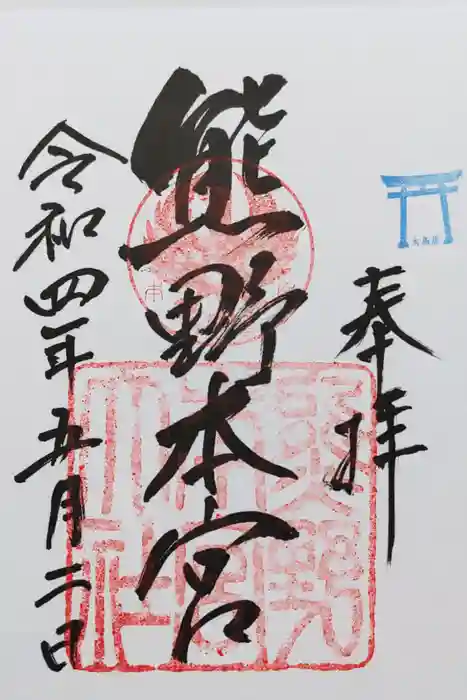 奉拝
大鳥居
熊野本宮
令和四年五月二日
熊野本宮大社